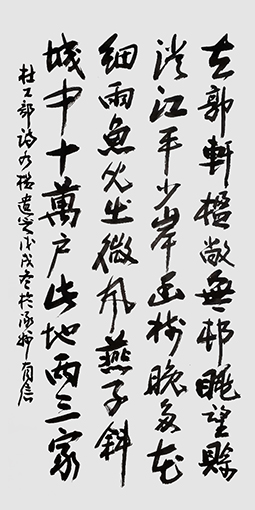 去郭軒楹敞無邨眺望賒
澄江平少岸幽樹晚多花
細雨魚兒出微風燕子斜
城中十萬户此地兩三家
杜工部詩水檻遣心戊戌冬於